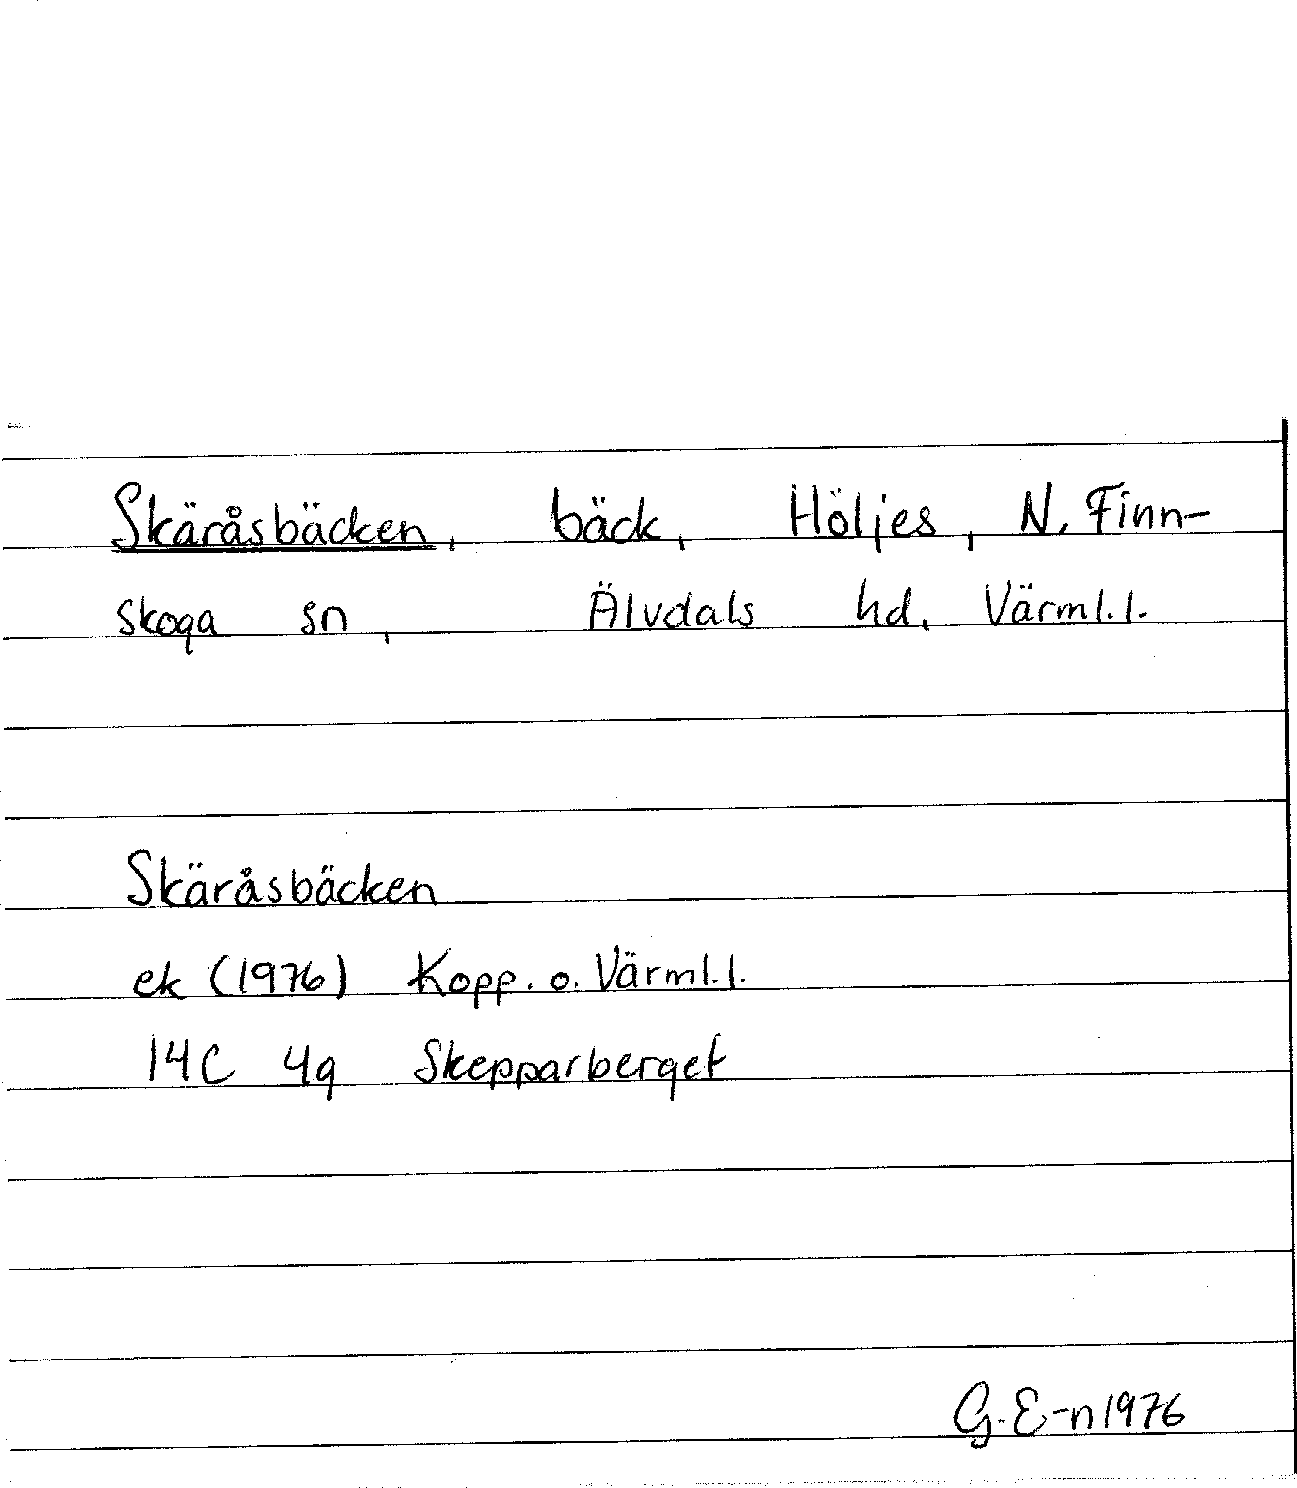 Skäråsbäcken, bäck, Höljes, N. Finn-
skoga sn, Älvdals hd, Värml.l.
Skäråsbäcken
ek (1976) Kopp. o. Värml.l.
14C 4g Skepparberget
G. E-n 1976